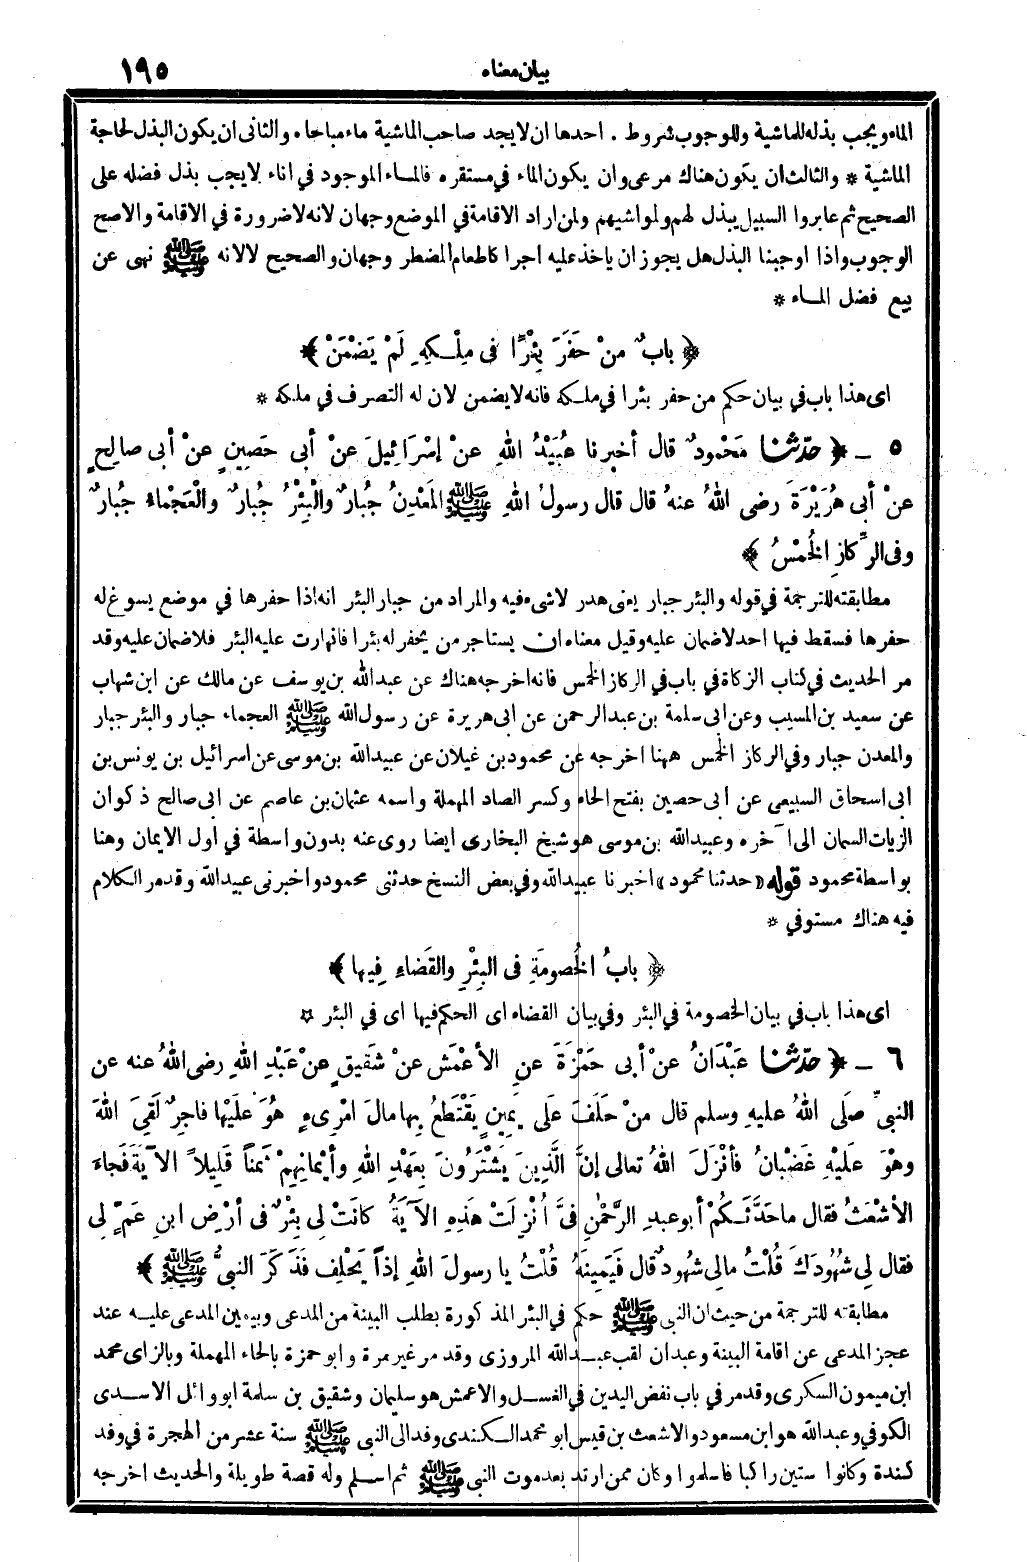 بيان معناه ١٩٥
الماء ويجب بذله للماشية وللوجوب شروط . احدها ان لا يجد صاحب الماشية ماء مباحا ﻫ والثانى ان يكون البذل لحاجة
الماشية * والثالث ان يكون هناك مرعى وان يكون الماء في مستقره فالماء الموجود في اناء لا يجب بذل فضله على
الصحيح ثم عابروا السبيل يبذل لهم ولمواشيهم ولمن اراد الاقامة في الموضع وجهان لانه لا ضرورة في الاقامة والاصح
الوجوب واذا اوجبنا البذل هل يجوز ان ياخذ عليه اجرا كاطعام المضطر وجهان والصحيح لا لانه ﷺ نهى عن
بيع فضل الماء *
﴿ بابٌ منْ حَفَرَ بِئْرًا فى مِلْكِهِ لَمْ يَضْمَنْ ﴾
اى هذا باب في بيان حكم من حفر بئرا في ملكه فانه لا يضمن لان له التصرف في ملكه *
٥ _ ﴿ حدّثنا مَحْمُودٌ قال أخبرنا عُبَيْدُ اللهِ عنْ إسْرَائِيلَ عنْ أبى حَصِينٍ عنْ أبى صالِحٍ
عنْ أبى هُرَيْرَةَ رضى اللهُ عنهُ قال قال رسولُ اللهِ ﷺ المَعْدِنُ جُبارٌ والْبِئْرُ جُبارٌ والْعَجْماءُ جُبارٌ
وفى الرِّكازِ الخُمْسُ ﴾
مطابقته للترجمة في قوله والبئر جبار يعنى هدر لا شىء فيه والمراد من جبار البئر انه اذا حفرها في موضع يسوغ له
حفرها فسقط فيها احد لا ضمان عليه وقيل معناه ان يستاجر من يحفر له بئرا فانهارت عليه البئر فلا ضمان عليه وقد
مر الحديث في كتاب الزكاة في باب في الركاز الخمس فانه اخرجه هناك عن عبدالله بن يوسف عن مالك عن ابن شهاب
عن سعيد بن المسيب وعن ابى سلمة بن عبدالرحمن عن ابى هريرة عن رسول الله ﷺ العجماء جبار والبئر جبار
والمعدن جبار وفي الركاز الخمس ههنا اخرجه عن محمود بن غيلان عن عبيدالله بن موسى عن اسرائيل بن يونس بن
ابى اسحاق السبيعى عن ابى حصين بفتح الحاء وكسر الصاد المهملة واسمه عثمان بن عاصم عن ابى صالح ذكوان
الزيات السمان الى آخره وعبيدالله بن موسى هو شيخ البخارى ايضا روى عنه بدون واسطة في اول الايمان وهنا
بواسطة محمود قوله «حدثنا محمود» اخبرنا عبيدالله وفي بعض النسخ حدثنى محمود واخبرنى عبيدالله وقد مر الكلام
فيه هناك مستوفي *
﴿ بابُ الخُصومَةِ فى البِئْرِ والقَضاءِ فِيها ﴾
اى هذا باب في بيان الخصومة في البئر وفي بيان القضاء اى الحكم فيها اى في البئر *
٦ _ ﴿ حدّثنا عَبْدَانُ عنْ أبى حَمْزَةَ عنِ الأعْمَشِ عنْ شَقيقٍ عنْ عَبْدِ اللهِ رضى اللهُ عنه عنِ
النبىِّ صَلَى اللهُ عليهِ وسلم قال منْ حَلَفَ عَلَى يَمِينٍ يَقْتَطِعُ بِها مالَ امْرِىءٍ هُوَ عَلَيْها فاجِرٌ لَقِىَ اللهَ
وهْوَ عَلَيْهِ غَضْبانُ فأنْزَلَ اللهُ تعالى إنَّ الَّذِينَ يَشْتَرُونَ بِعَهْدِ اللهِ وأيْمانِهِمْ ثَمناً قَلِيلاً الآيَةَ فَجاءَ
الأشْعَثُ فقال ما حَدَّثَكُمْ أبو عبدِ الرَّحْمٰنِ فىَّ أُنْزِلَتْ هَذِهِ الآيَةُ كانَتْ لِى بِئْرٌ فى أرْضِ ابنِ عَمٍّ لِى
فقال لِى شُهُودَكَ قُلْتُ مالِى شُهُودٌ قال فَيَمِينَهُ قُلْتُ يا رسولَ اللهِ إذاً يَحْلِف فَذَكَرَ النبىُّ ﷺ ﴾
مطابقته للترجمة من حيث ان النبى ﷺ حكم في البئر المذكورة بطلب البينة من المدعى وبيمين المدعى عليه عند
عجز المدعى عن اقامة البينة وعبدان لقب عبدالله المروزى وقد مر غير مرة وابو حمزة بالحاء المهملة وبالزاى محمد
ابن ميمون السكرى وقد مر في باب نفض اليدين في الغسل والاعمش هو سليمان وشقيق بن سلمة ابو وائل الاسدى
الكوفي وعبدالله هو ابن مسعود والاشعث بن قيس ابو محمد الكندى وفد الى النبى ﷺ سنة عشر من الهجرة في وفد
كندة وكانوا ستين راكبا فاسلموا وكان ممن ارتد بعد موت النبى ﷺ ثم اسلم وله قصة طويلة والحديث اخرجه